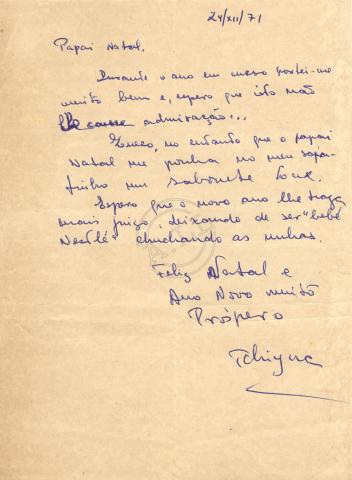 24/XII/71
Papai Natal,
Durante o ano em curso portei-me
muito bem e, espero que isto não
lhe cause admiração...
no entanto que o papai
Natal me ponha no meu sapa-
tinho um sabonete
Espero que o novo ano lhe traga
mais juizo, deixando de ser "bebé
Nestlé" chuchando as unhas.
Feliz Natal e
Ano Novo muito
Próspero